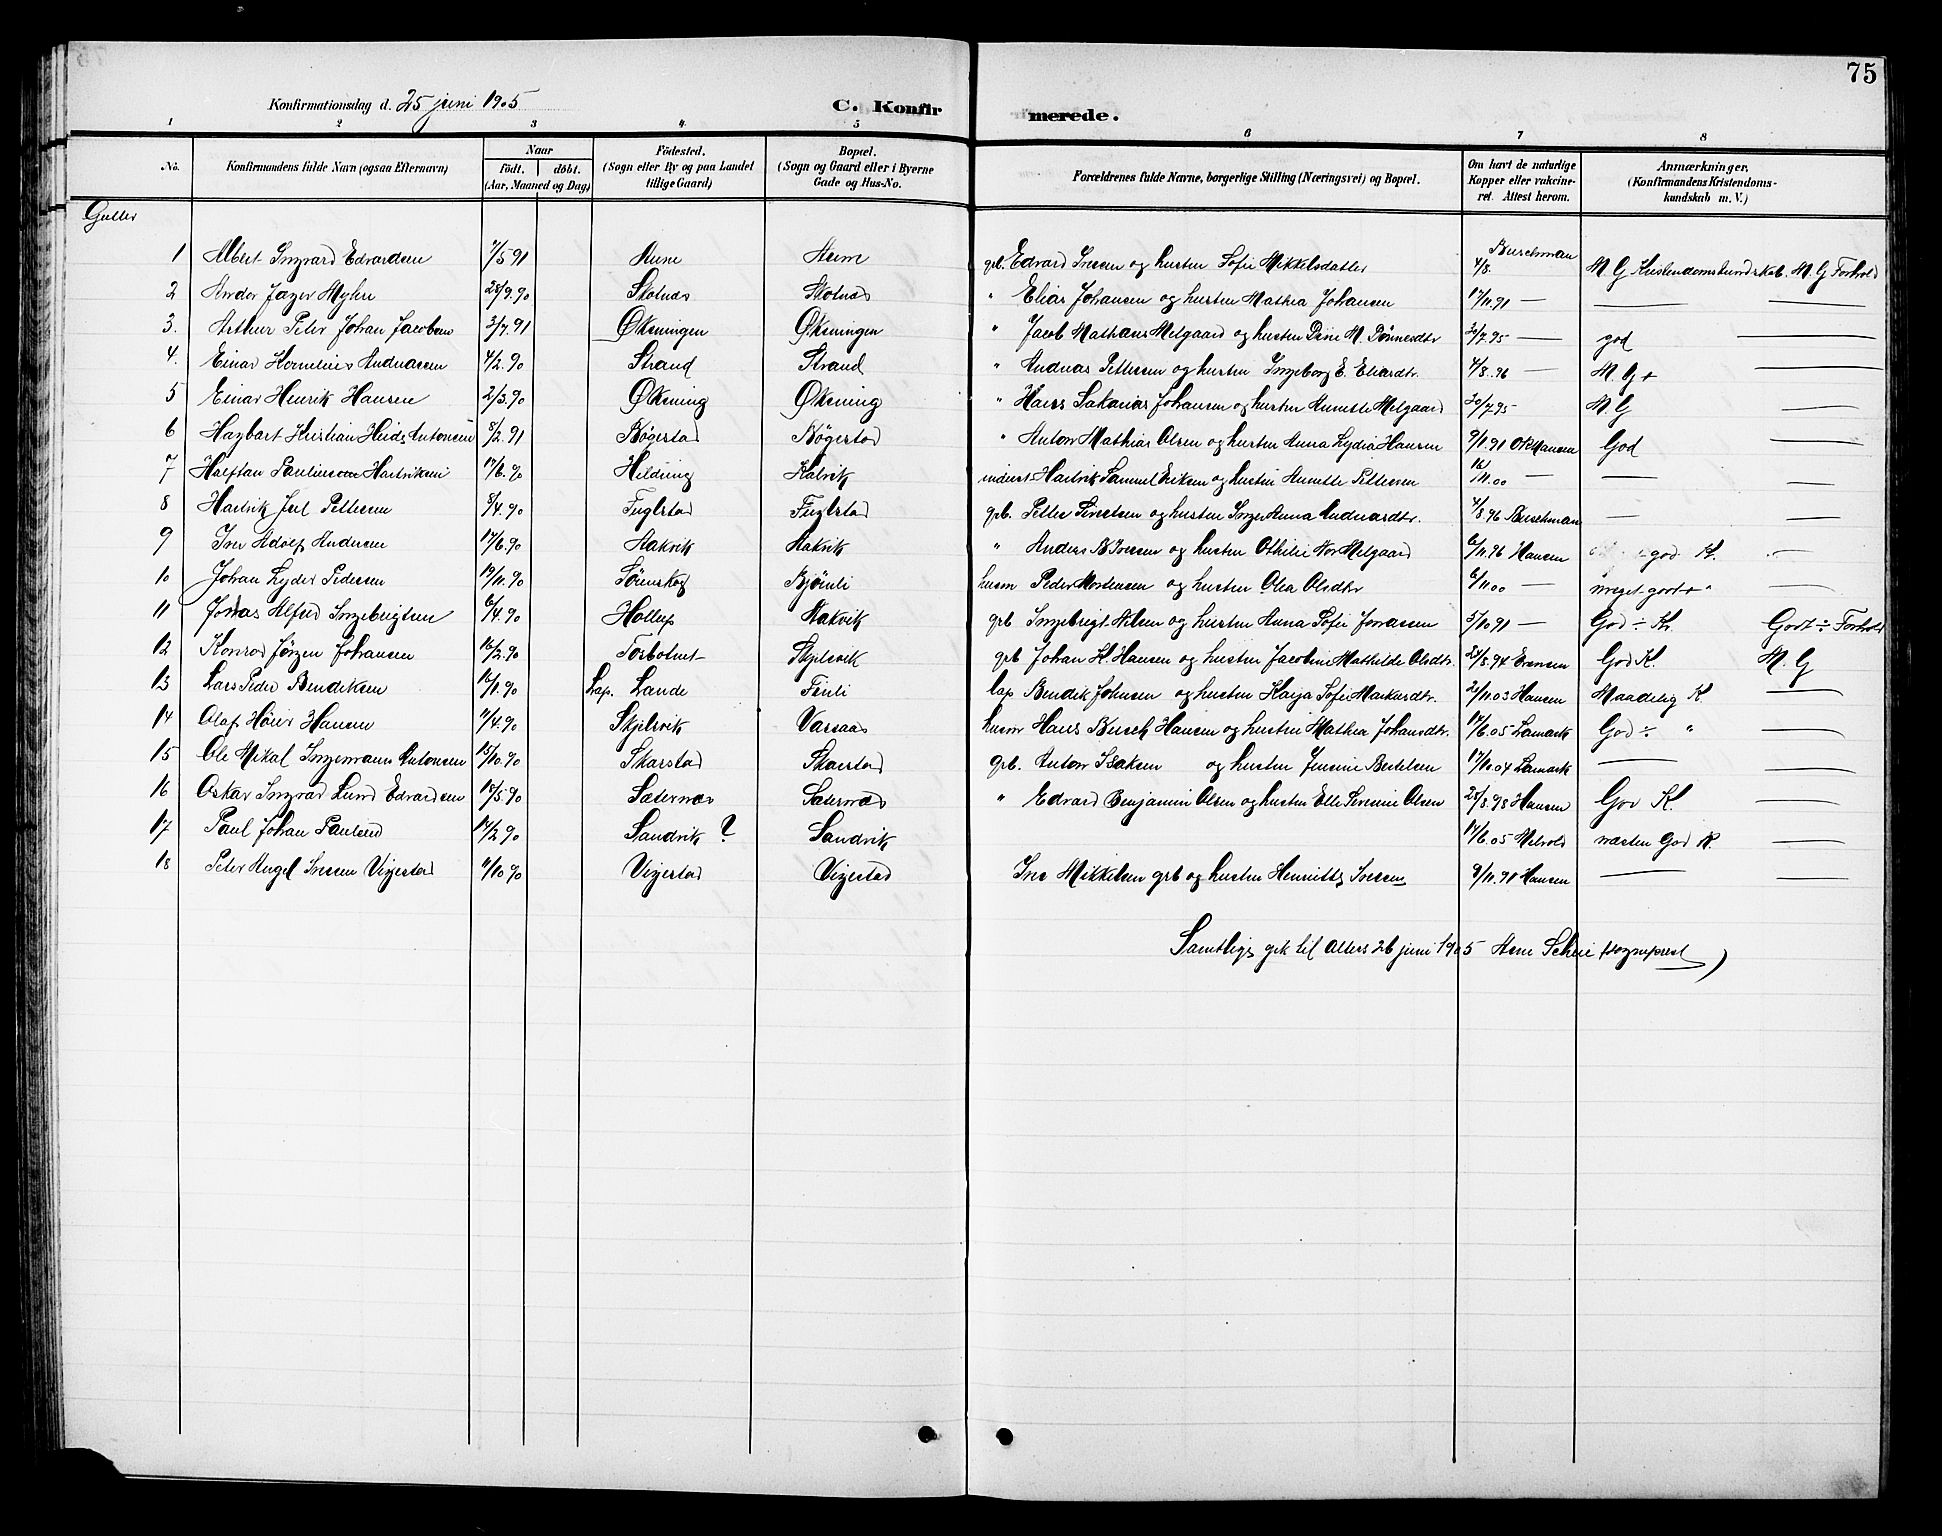 75
Konfirmationsdag d. 25 juni 1905 C. Konfirmerede.
1 2 3 4 5 6 7 8
No. Konfirmandens fulde Navn (ogsaa Efternavn) Naar født. døbt. (Aar, Maaned og Dag) Fødested. (Sogn eller By og paa Landet tillige Gaard) Bopæl. (Sogn og Gaard eller i Byerne Gade og Hus-No. Forældrenes fulde Navne, borgerlige Stilling (Næringsvei) og Bopæl. Om havt de naturlige Kopper eller vakcineret. Attest herom. Anmærkninger. (Konfirmandens Kristendomskundskab m. V.)
Gutter
1 Albert Ingvard Edvardsen 7/5 91 Aune grb. Edvard Iversen og hustru Sofie Mikkelsdatter 4/8. Buschman M. G Kristendomskundskab. M. G Forhold
2 Andor Jæger Myhre 28/9.90 Skotnæs Skotnæs " Elias Johansen og hustru Mathea Johansen 17/11.91 —
3. Arthur Peter Johan Jacobsen 3/7.91 Øksningen Øksningen " Jacob Mathæus Melgaard og hustru M. Dønnesdtr 20/7.95 — god
4. Einar Kornelius Andreasen 4/2.90 Strand Strand " Andreas Pettersen og hustru Ingeborg E. Eliasdtr. 4/8.96 — M. G +
5 Einar Henrik Hansen 2/3.90 Øksning Øksning " Hans Sakarias Johansen og hustru Anette Melgaard 20/7.95 — M. G
6 Hagbart Kristian Antonsen 8/2.91 Bøgestad Bøgestad " Anton Mathias Olsen og hustru Anna Lydia Hansen 9/11.91 Hansen God
7 Halftan Hartviksen 17/6.90 Hilding Kalvik inderst Hartvik Samuel Eriksen og hustru Anette Pettersen 16/11.00 — —
8 Hartvik Juel Pettersen 8/4.90 Fuglstad Fuglstad grb. Petter Sivertsen og hustru Inger Anna Andreasdtr. 4/8.96 Buschman —
9 Iver Adolf Andersen 17/6.90 Aakvik Aakvik " Anders B Iversen og hustru Othilie Melgaard 6/11.96 Hansen god K.
10 Johan Lyder Pedersen 19/11.90 Sørenskog Bjønli husm Peder Mortensen og hustru Olea Olsdtr 6/11.00 — meget godt + "
11 Jonas Alfred Ingebrigtsen 6/4.90 Aakvik grb Ingebrigt Nilsen og hustru Anna Sofie Jonassen 5/10.91 — God ÷ K. Godt ÷ Forhold
12 Konrad Jørgen Johansen 16/2.90 Torbotnet Skjelsvik grb Johan K. Hansen og hustru Jacobine Mathilde Olsdtr. 28/8.94 Evensen God K. M. G
13 Lars Peder Bendiksen 16/1.90 Lap. Lande Finli lap Bendik Johnsen og hustru Kaija Sofie Markusdtr. 2/11.03 Hansen Maadelig K.
14 Olaf Høier Hansen 11/4.90 Skjelsvik Vassaas husm Hans Busch Hansen og hustru Mathea Johansdtr. 14/6.05 Lamark God ÷ "
15 Ole Mikal Ingemann Antonsen 15/10.90 Skarstad Skarstad grb. Anton Isaksen og hustru Jensine Bertelsen 17/10.04 Lamark —
16 Oskar Ingvar Lund Edvardsen 18/5.90 Sæternæs Sæternæs " Edvard Benjamin Olsen og hustru Elle Serenine Olsen 28/8.98 Hansen God K.
17 Paul Johan Paulsen 14/2.90 Sandvik ? Sandvik 17/6.05 næsten God K.
18 Peter Angel Iversen Vigestad 11/10.90 Vigestad Vigestad Iver Mikkelsen grb og hustru Henriette Iversen 9/11.91 Hansen —
Samtlige gik til Alters 26 juni 1905 Arne Scheie (sogneprest)